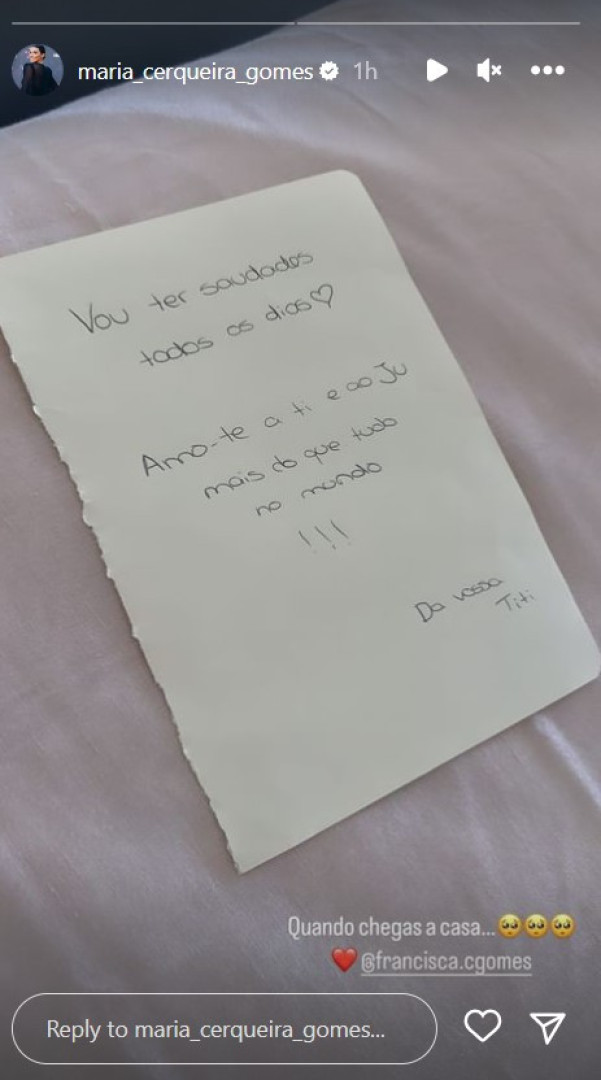 maria_cerqueira_gomes 1h
Vou ter saudades
todos os dias♡
Amo-te a ti e ao Ju
mais do que tudo
no mundo
!!!
Da vossa
Titi
Quando chegas a casa...🥺🥺🥺
❤️ @francisca.cgomes
Reply to maria_cerqueira_gomes...